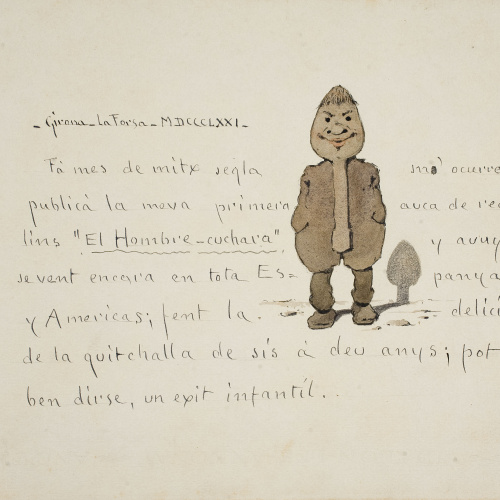 - Girona - La Forsa - MDCCCLXXI -
Fá mes de mitx segla m' ocurre
publicà la meva primera auca de re
lins "El Hombre-cuchara", y avuy
se vent encara en tota Es= panya
y Americas; fent la delici
de la quitchalla de sis à deu anys; pot
ben dirse, un exit infantíl..